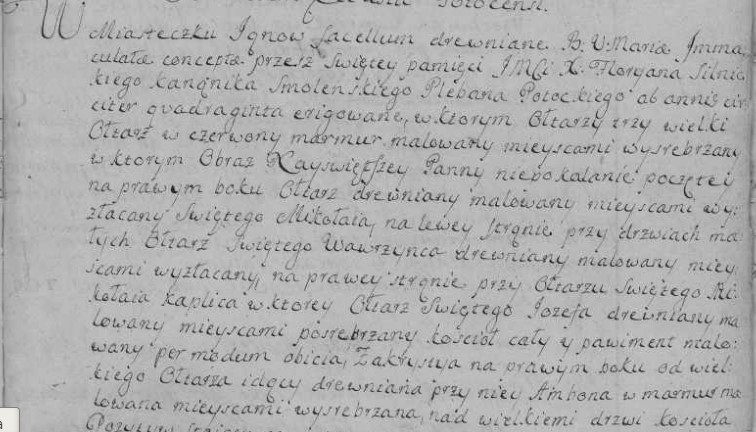 Potocensi.
W Miasteczku Ignow Sacellum drewniane B. V. Mariæ Imma
culatæ conceptæ przesz Swiętey pamięci JMCi X. Floryana Silnic
kiego kanonika Smolenskiego Plebana Potockiego ab annis cir
citer quadraginta erigowane, w ktorym Ołtarzy trzy wielki
Ołtarz w czerwony marmur malowany mieyscami wysrebrzany
w ktorym Obraz Nayswiętszey Panny niepokalanie poczętei
na prawym boku Ołtarz drewniany malowany mieyscami wy:
złacany Swiętego Mikołaia, na lewey stronie przy drzwiach ma
łych Ołtarz Swiętego Wawrzynca drewniany malowany miey
scami wyzłacany, na prawey stronie przy Ołtarzu Swiętego Mi
kołaia kaplica w ktorey Ołtarz Swiętego Jozefa drewniany ma
lowany mieyscami posrebrzany kosciół cały y pawiment malo:
wany per modum obicia, Zakrystya na prawym boku od wiel
kiego Ołtarza idący drewniana przy niey Ambona w marmur ma
lowana mieyscami wysrebrzana, nad wielkiemi drzwi koscioła
Pozytyw